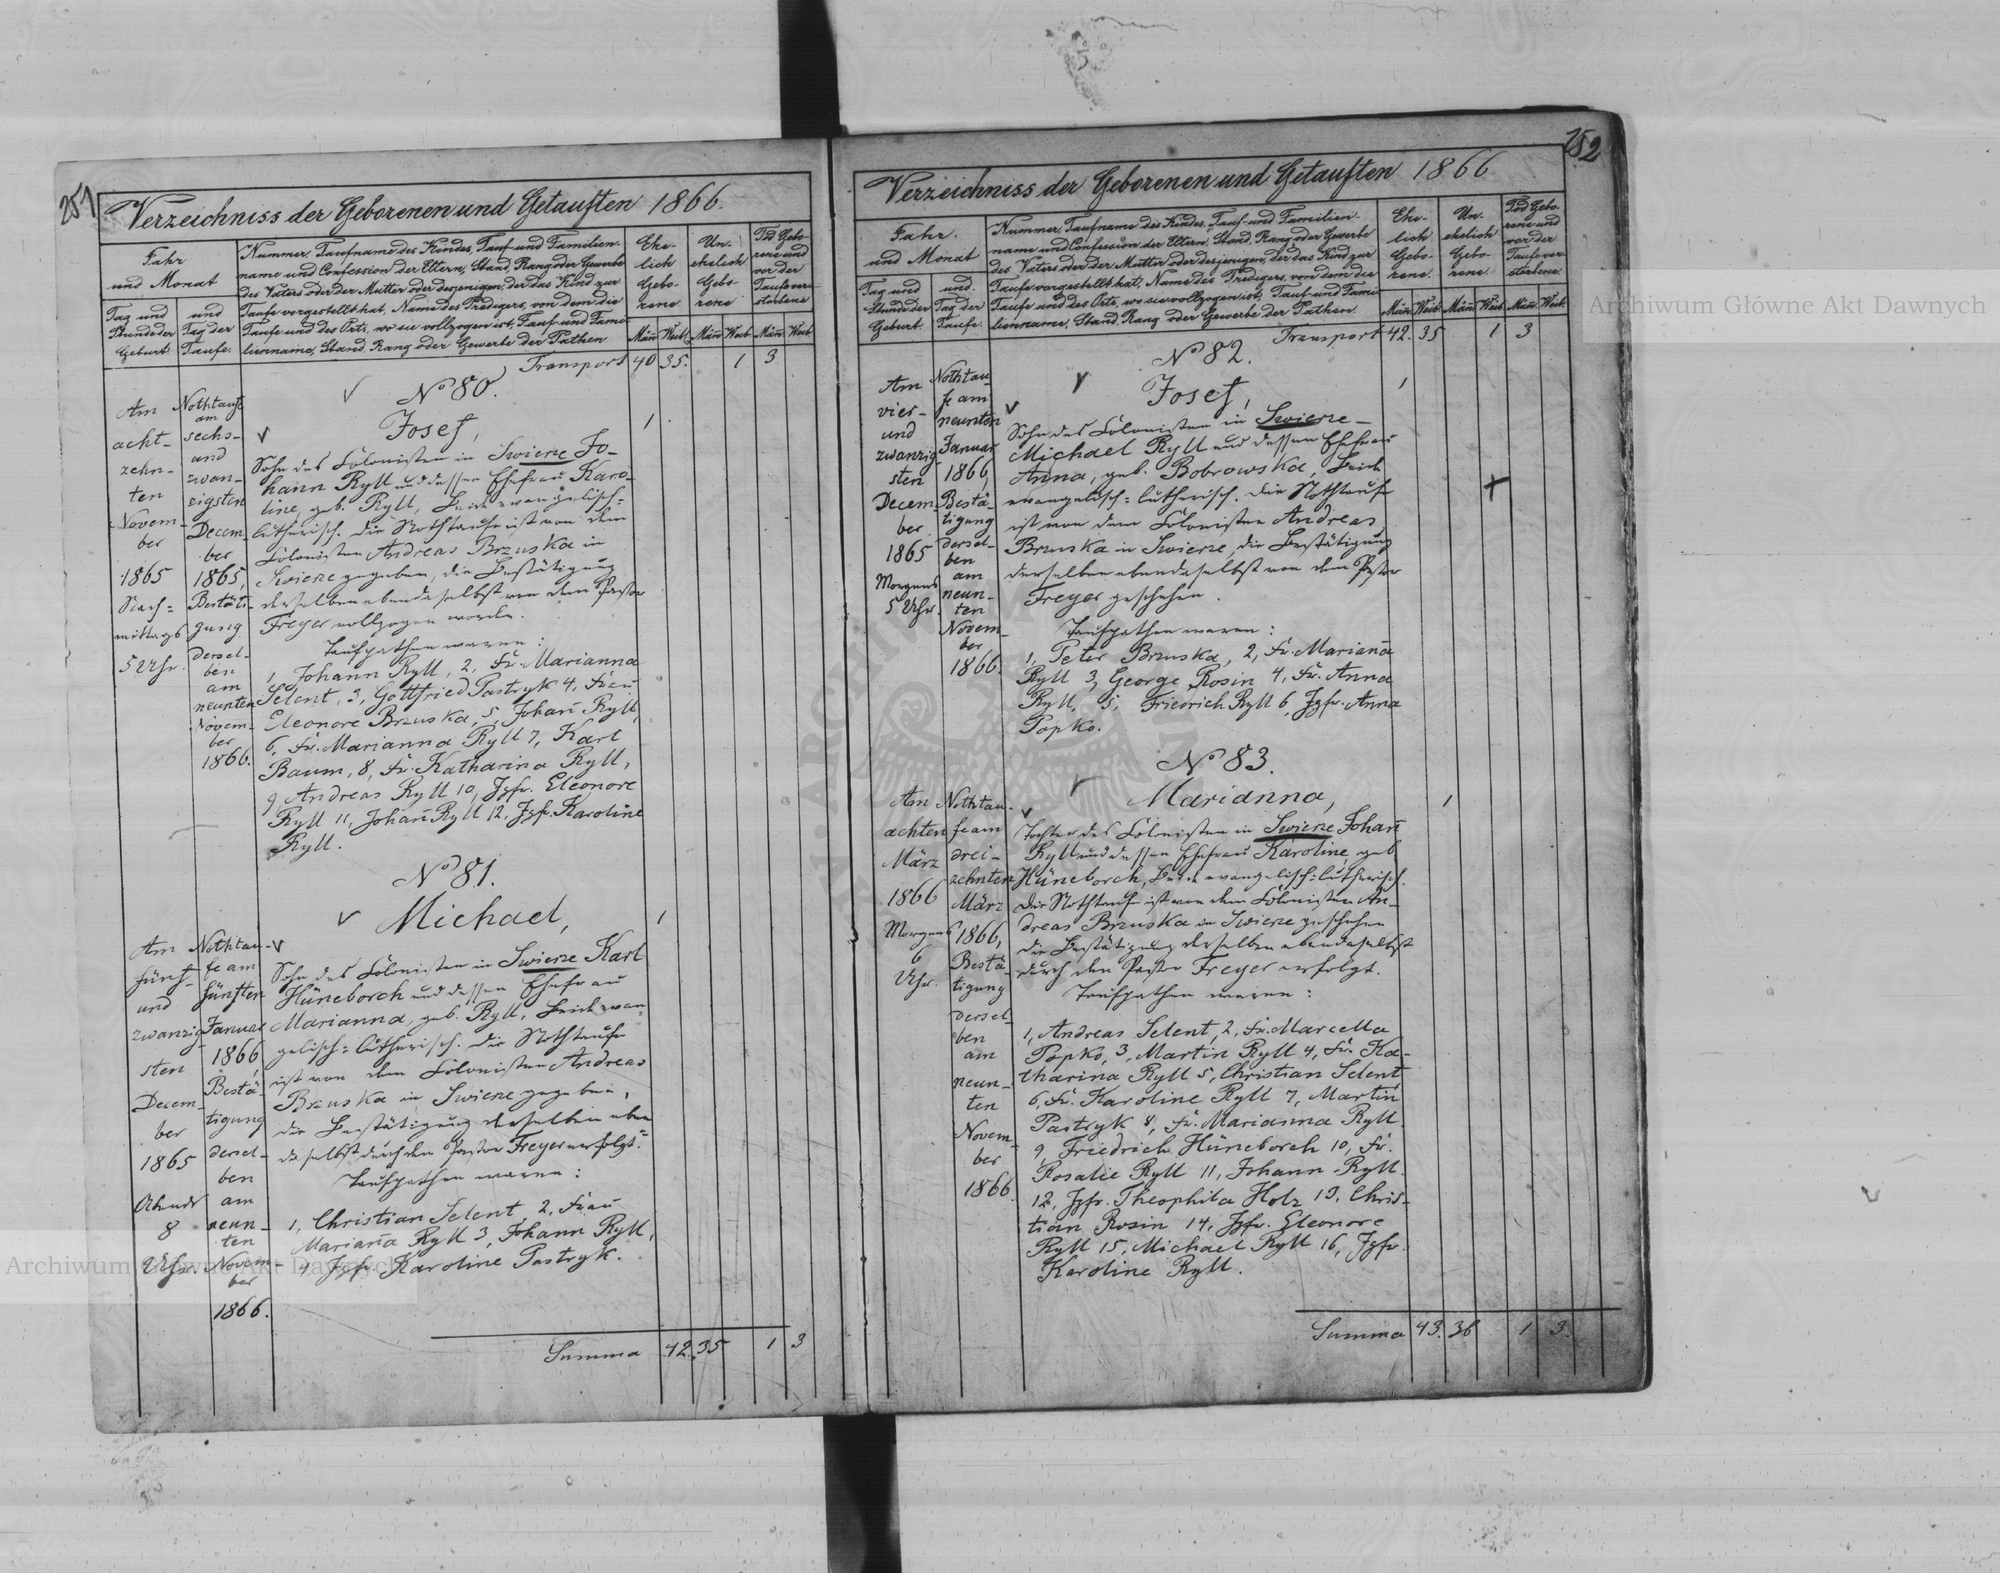 251
Verzeichniss der Geborenen und Getauften 1866.
Jahr
und Monat
Tag und
Stunde der
Geburt
und
Tag der
Taufe.
Nummer, Taufname des Kindes, Tauf- und Familien-
name und Confession der Eltern, Stand, Rang oder Gewerbe
des Vaters oder der Mutter oder desjenigen, der das Kind zur
Taufe vorgestellt hat, Name des Predigers, von dem die
Taufe und des Orts, wo sie vollzogen ist, Tauf- und Fami-
lienname, Stand, Rang oder Gewerbe der Pathen
Ehe-
lich
Gebo-
rene
Un-
ehelich
Gebo-
rene
Tod Gebo-
rene und
vor der
Taufe ver-
storbene
Män. Weib. Män. Weib. Män. Weib.
Transport 40 35. 1 3
Am
acht-
zehn-
ten
Novem-
ber
1865
Nach-
mittags
5 Uhr.
Nothtaufe
am
sechs-
und
zwan-
zigsten
Decem
ber
1865,
Bestäti-
gung
dersel-
ben
am
neunten
Novem-
ber
1866.
No 80.
Josef,
1
Sohn des Colonisten in Swierze Jo-
hann Ryll und dessen Ehefrau Karo-
line, geb. Ryll, Beide evangelisch-
lutherisch. Die Nothtaufe ist von dem
Colonisten Andreas Brzuska in
Swierze gegeben, die Bestätigung
derselben ebendaselbst von dem Pastor
Freyer vollzogen worden.
Taufpathen waren:
1, Johann Ryll, 2, Fr. Marianna
Selent, 3, Gottfried Pastryk 4, Frau
Eleonore Brzuska, 5, Johan̄ Ryll,
6, Fr. Marianna Ryll 7, Karl
Baum, 8, Fr. Katharina Ryll,
9, Andreas Ryll 10, Jgfr. Eleonore
Ryll 11, Johan̄ Ryll 12, Jgfr. Karoline
Ryll.
Am
fünf-
und
zwanzig-
sten
Decem-
ber
1865
Abends
8
Uhr.
Nothtau-
fe am
fünften
Januar
1866,
Bestä-
tigung
dersel-
ben
am
neun-
ten
Novem-
ber
1866.
No 81.
Michael,
1
Sohn des Colonisten in Swierze Karl
Hüneborch und dessen Ehefrau
Marianna, geb. Ryll, Beide evan-
gelisch-lutherisch. Die Nothtaufe
ist von dem Colonisten Andreas
Brzuska in Swierze gegeben,
die Bestätigung derselben eben
daselbst durch den Pastor Freyer erfolgt.
Taufpathen waren:
1, Christian Selent 2, Frau
Marian̄a Ryll 3, Johann Ryll,
4, Jgfr. Karoline Pastryk.
Summa 42. 35 1 3
252
Verzeichniss der Geborenen und Getauften 1866
Jahr
und Monat
Tag und
Stunde der
Geburt
und
Tag der
Taufe.
Nummer, Taufname des Kindes, Tauf- und Familien-
name und Confession der Eltern, Stand, Rang oder Gewerbe
des Vaters oder der Mutter oder desjenigen, der das Kind zur
Taufe vorgestellt hat, Name des Predigers, von dem die
Taufe und des Orts, wo sie vollzogen ist, Tauf- und Fami-
lienname, Stand, Rang oder Gewerbe der Pathen.
Ehe-
lich
Gebo-
rene.
Un-
ehelich
Gebo-
rene
Tod Gebo-
rene und
vor der
Taufe ver-
storbene.
Män. Weib. Män. Weib. Män. Weib.
Transport 42. 35 1 3
Am
vier-
und
zwanzig
sten
Decem-
ber
1865
Morgens
5 Uhr.
Nothtau-
fe am
neunten
Januar
1866,
Bestä-
tigung
dersel-
ben
am
neun-
ten
Novem-
ber
1866.
No 82.
Josef,
1
Sohn des Colonisten in Swierze
Michael Ryll und dessen Ehefrau
Anna, geb. Bobrowska, Beide
evangelisch-lutherisch. Die Nothtaufe
ist von dem Colonisten Andreas
Brzuska in Swierze, die Bestätigung
derselben ebendaselbst von dem Pastor
Freyer geschehen.
Taufpathen waren:
1, Peter Brzuska, 2, Fr. Marian̄a
Ryll 3, George Rosin 4, Fr. Anna
Ryll, 5, Friedrich Ryll 6, Jgfr. Anna
Popko.
Am
achten
März
1866
Morgens
6
Uhr.
Nothtau-
fe am
drei-
zehnten
März
1866,
Bestä-
tigung
dersel-
ben
am
neun-
ten
Novem-
ber
1866.
No 83.
Marianna,
1
Tochter des Colonisten in Swierze Johan̄
Ryll und dessen Ehefrau Karoline, geb
Hüneborch, Beide evangelisch-lutherisch.
Die Nothtaufe ist von dem Colonisten An-
dreas Brzuska in Swierze geschehen
die Bestätigung derselben ebendaselbst
durch den Pastor Freyer erfolgt.
Taufpathen waren:
1, Andreas Selent, 2, Fr. Marcella
Popko, 3, Martin Ryll 4, Fr. Ka-
tharina Ryll 5, Christian Selent
6, Fr. Karoline Ryll 7, Martin
Pastryk 8, Fr. Marianna Ryll
9, Friedrich Hüneborch 10, Fr.
Rosalie Ryll 11, Johann Ryll
12, Jgfr. Theophila Holz 13, Chris-
tian Rosin 14, Jgfr. Eleonore
Ryll 15, Michael Ryll 16, Jgfr.
Karoline Ryll.
Summa 43. 36 1 3.
Archiwum Główne Akt Dawnych
Archiwum Główne Akt Dawnych